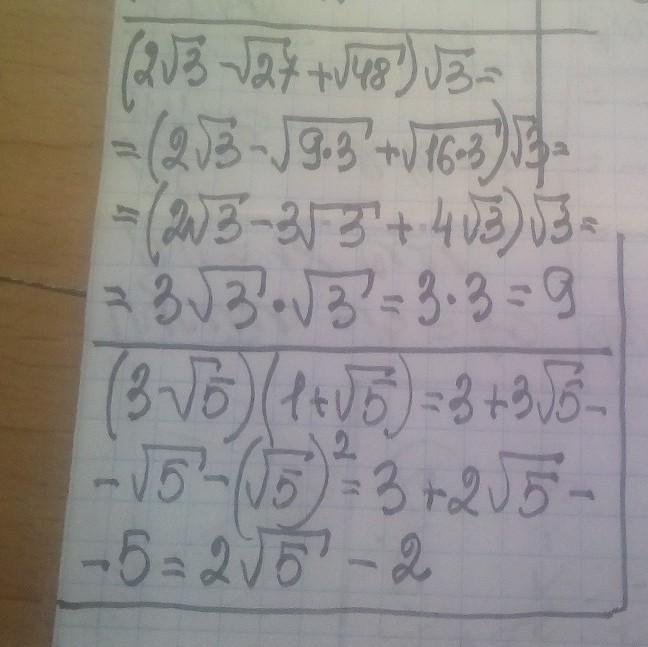 (2√3 - √27 + √48) √3 =
= (2√3 - √9·3 + √16·3) √3 =
= (2√3 - 3√3 + 4√3) √3 =
= 3√3 · √3 = 3·3 = 9
(3 - √5)(1 + √5) = 3 + 3√5 -
- √5 - (√5)² = 3 + 2√5 -
- 5 = 2√5 - 2